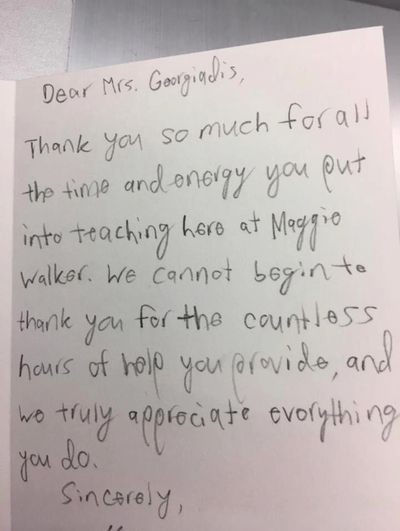 Dear Mrs. Georgiadis,
Thank you so much for all
the time and energy you put
into teaching here at Maggie
Walker. We cannot begin to
thank you for the countless
hours of help you provide, and
we truly appreciate everything
you do.
Sincerely,